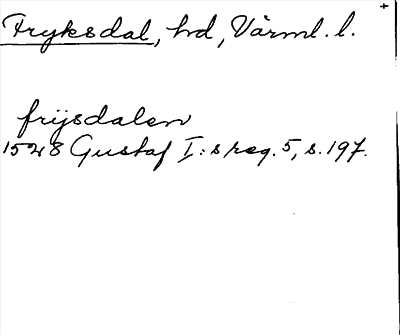 Fryksdal, hd, Värml. l.
frijsdalen
1528 Gustaf I:s reg. 5, s. 197.